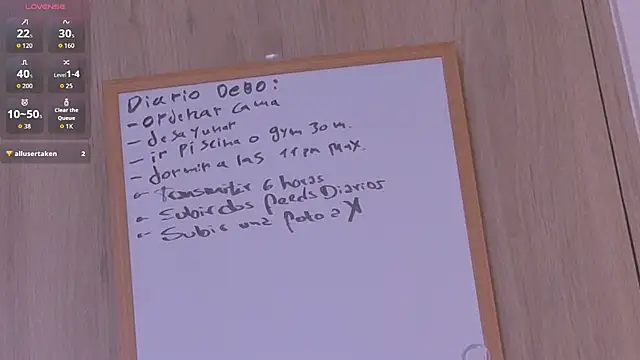 LOVENSE
22s
120
30s
160
40s
200
Level 1-4
25
10~50s
38
Clear the
Queue
1X
allusertaken 2
Diario DEBO:
-ordenar cama
- desayunar
- ir piscina o gym 30 m.
- dormir a las 11 pm max.
- Transmitir 6 horas
- Subir dos Reeds Diarios
- Subir una foto a X